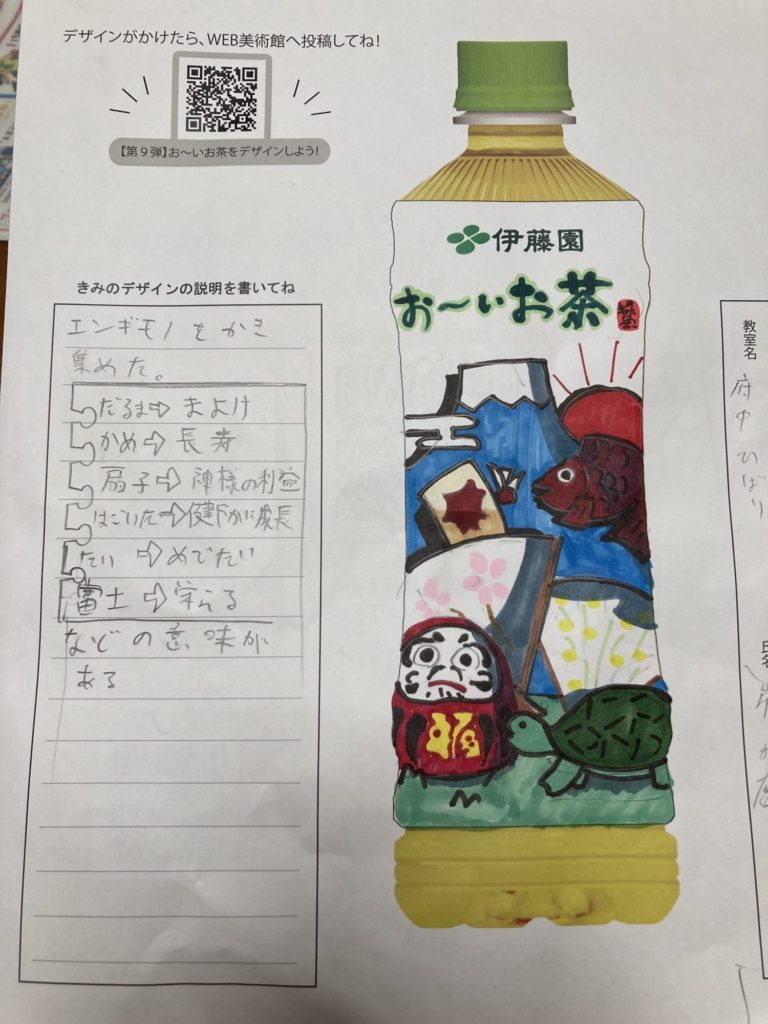 デザインがかけたら、WEB美術館へ投稿してね!
【第9弾】お～いお茶をデザインしよう!
きみのデザインの説明を書いてね
エンギモノをかき
集めた。
だるま⇨まよけ
かめ⇨長寿
扇子⇨神様の利益
はごいた⇨健やかに成長
たい⇨めでたい
富士⇨栄える
などの意味が
ある
伊藤園
お～いお茶
緑茶
福
教室名
府中ひばり